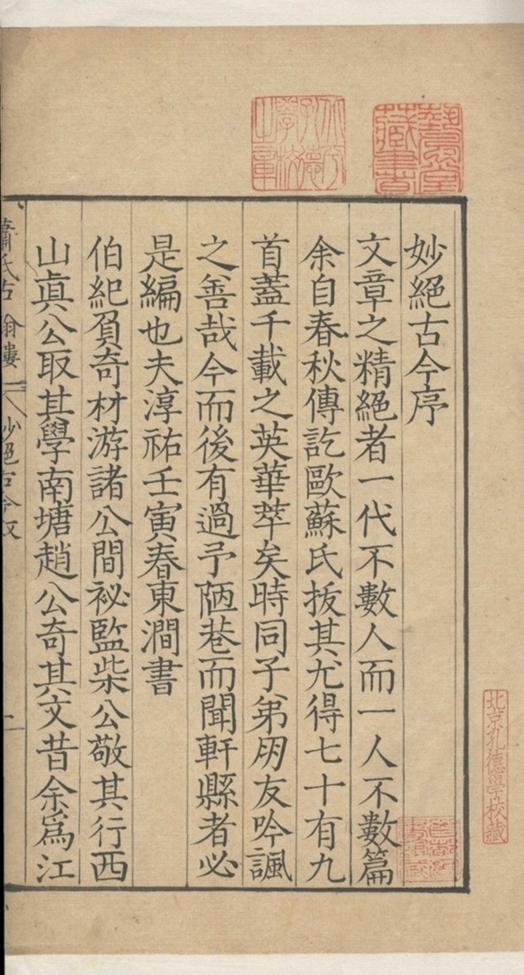 妙絕古今序
文章之精絕者一代不數人而一人不數篇
余自春秋傳訖歐蘇氏拔其尤得七十有九
首葢千載之英華萃矣時同子弟朋友吟諷
之善哉今而後有過予陋巷而聞軒縣者必
是編也夫淳祐壬寅春東澗書
伯紀負奇材游諸公間祕監柴公敬其行西
山眞公取其學南塘趙公奇其文昔余爲江
蕭氏古翰樓
妙絕古今
藏書
北京孔德學校藏